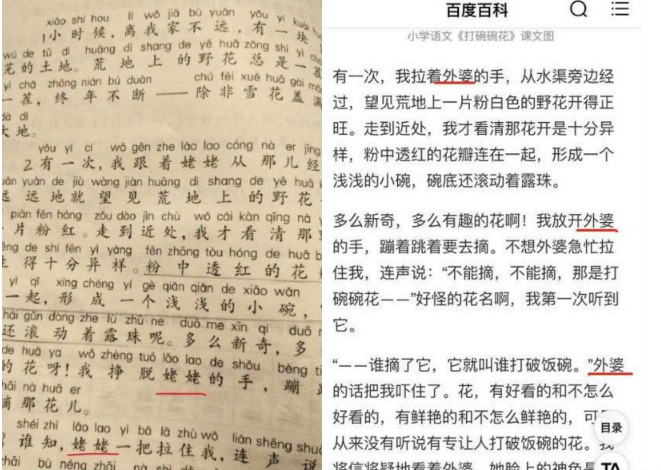 xiǎo shí hou lí wǒ jiā bù yuǎn yǒu yí kuài
1小时候，离我家不远，有一块
wú de tǔ dì huāng dì shang de yě huā zǒng shì yì chá
芜的土地。荒地上的野花总是一茬
yì chá zhōng nián bú duàn chú fēi xuě huā gài mǎn
一茬，终年不断——除非雪花盖满
大地。
yǒu yí cì wǒ gēn zhe lǎo lao cóng nà er jīng
2有一次，我跟着姥姥从那儿经
yuǎn yuǎn de jiù wàng jiàn huāng dì shang de yě huā
远远地就望见荒地上的野花
piàn fěn hóng zǒu dào jìn chù wǒ cái kàn qīng nà
片粉红。走到近处，我才看清那
de shí fēn yì yàng fěn zhōng tòu hóng de huā
得十分异样。粉中透红的花
yì qǐ xíng chéng yí gè qiǎn qiǎn de xiǎo wǎn
一起，形成一个浅浅的小碗，
hái gǔn dòng zhe lù zhū ne duō me xīn qí duō
还滚动着露珠呢。多么新奇，多
de huā ya wǒ zhèng tuō lǎo lao de shǒu bèng
的花呀！我挣脱姥姥的手，蹦
摘那花儿。
shéi zhī lǎo lao yì bǎ lā zhù wǒ lián shēng shuō
谁知，姥姥一把拉住我，连声说
百度百科
小学语文《打碗碗花》课文图
有一次，我拉着外婆的手，从水渠旁边经
过，望见荒地上一片粉白色的野花开得正
旺。走到近处，我才看清那花开是十分异
样，粉中透红的花瓣连在一起，形成一个
浅浅的小碗，碗底还滚动着露珠。
多么新奇，多么有趣的花啊！我放开外婆
的手，蹦着跳着要去摘。不想外婆急忙拉
住我，连声说：“不能摘，不能摘，那是打
碗碗花——”好怪的花名啊，我第一次听到
它。
“——谁摘了它，它就叫谁打破饭碗。”外婆
的话把我吓住了。花，有好看的和不怎么
好看的，有鲜艳的和不怎么鲜艳的，可
从来没有听说有专让人打破饭碗的花。我
将信将疑地看着外婆，她脸上的神色是
目录